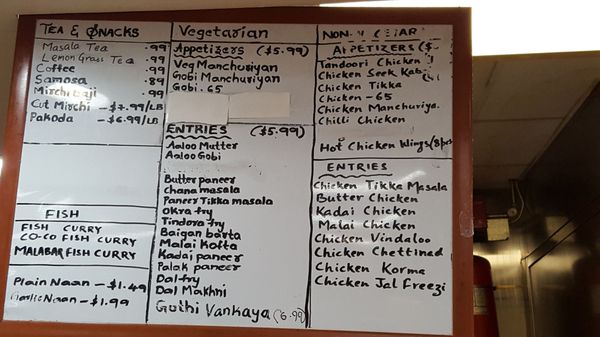 TEA & SNACKS
Masala Tea .99
Lemon Grass Tea .99
Coffee .99
Samosa .89
Mirchi baji .99
Cut Mirchi - $7.99/LB
Pakoda - $6.99/LB
FISH
FISH CURRY
CO-CO FISH CURRY
MALABAR FISH CURRY
Plain Naan - $1.49
Garlic Naan - $1.99
Vegetarian
Appetizers ($5.99)
Veg Manchuriyan
Gobi Manchuriyan
Gobi 65
ENTRIES ($5.99)
Aaloo Mutter
Aaloo Gobi
Butter paneer
Chana masala
Paneer Tikka masala
Okra fry
Tindora fry
Baigan barta
Malai Kofta
Kadai paneer
Palak paneer
Dal fry
Dal Makhni
Guthi Vankaya (6.99)
APPETIZERS ($
Tandoori Chicken
Chicken Seek Kab
Chicken Tikka
Chicken - 65
Chicken Manchuriya
Chilli Chicken
Hot Chicken Wings (8pc
ENTRIES
Chicken Tikka Masala
Butter Chicken
Kadai Chicken
Malai Chicken
Chicken Vindaloo
Chicken Chettinad
Chicken Korma
Chicken Jal Freezi